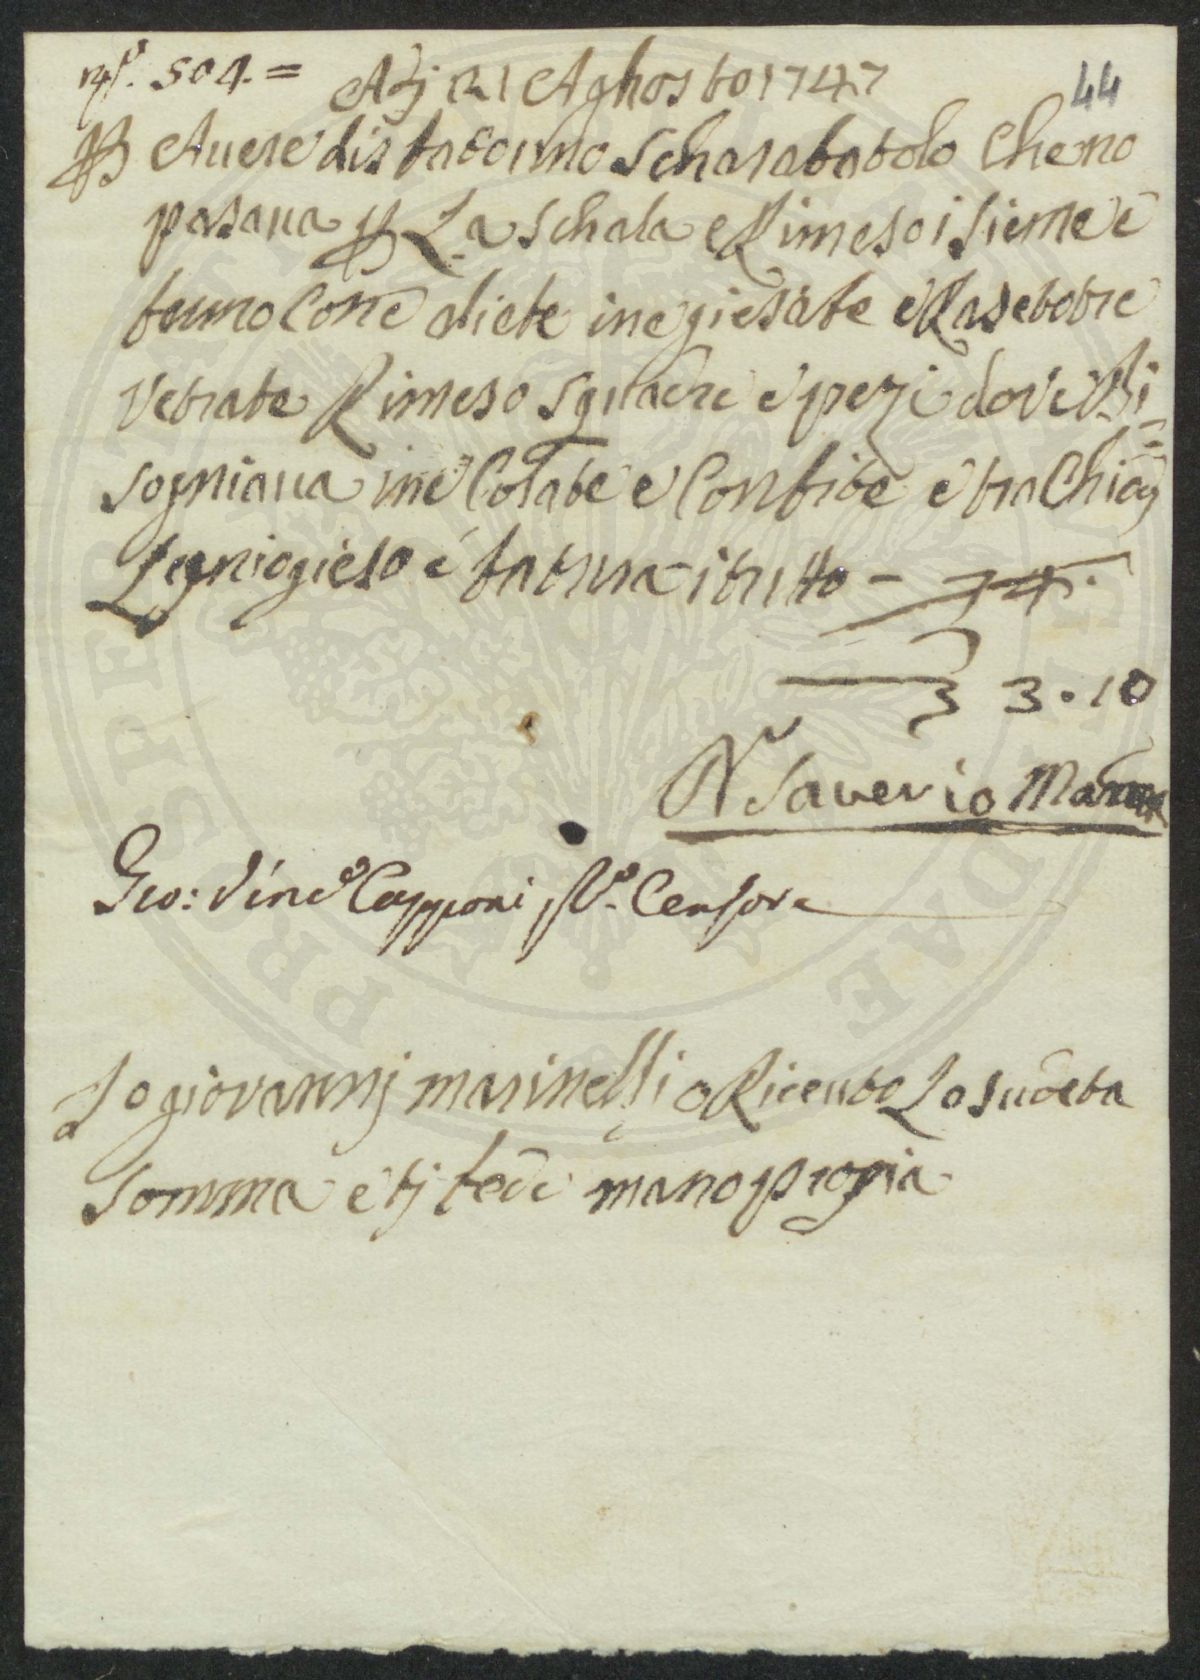 n.º 504. = Adj 21 Aghosto 1747
44
P Auere disfato uno scharabatolo che no
pasaua P La schala e Rimeso isieme e
fermo Con e aliete inegiesate e Rasetotre
vetrate Rimeso sguadre e pezi dove Bi=
sogniaua ine Colate e Confite e tra Chiov
Legnio gieso e fatura i tutto –
3 3.10
N Saverio
Gio: Vinc.º Capponi P.º Censore
Io giovannj marinelli o Riceuto La sudeta
somma e tj fede mano propia